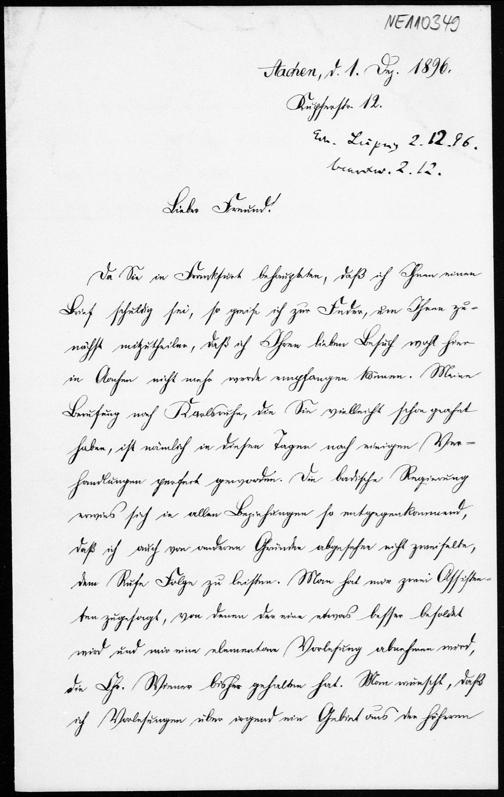 NE110349
Aachen, d. 1. Dez. 1896.
Kupferstr. 12.
Leipzig 2.12.96.
beantw. 2.12.
Lieber Freund!
Da Sie in Frankfurt behaupteten, daß ich Ihnen einen
Brief schuldig sei, so greife ich zur Feder, um Ihnen zu-
nächst mitzutheilen, daß ich Ihren lieben Besuch wohl hier
in Aachen nicht mehr werde empfangen können. Meine
Berufung nach Karlsruhe, die Sie vielleicht schon geahnt
haben, ist nämlich in diesen Tagen nach einigen Ver-
handlungen perfect geworden. Die badische Regierung
erwies sich in allen Beziehungen so entgegenkommend,
daß ich auch von anderen Gründen abgesehen nicht zweifelte,
dem Rufe Folge zu leisten. Man hat mir zwei Assisten-
ten zugesagt, von denen der eine etwas besser besoldet
wird und mir eine elementare Vorlesung abnehmen wird,
die Chr. Wiener bisher gehalten hat. Man wünscht, daß
ich Vorlesungen über irgend ein Gebiet aus der höheren